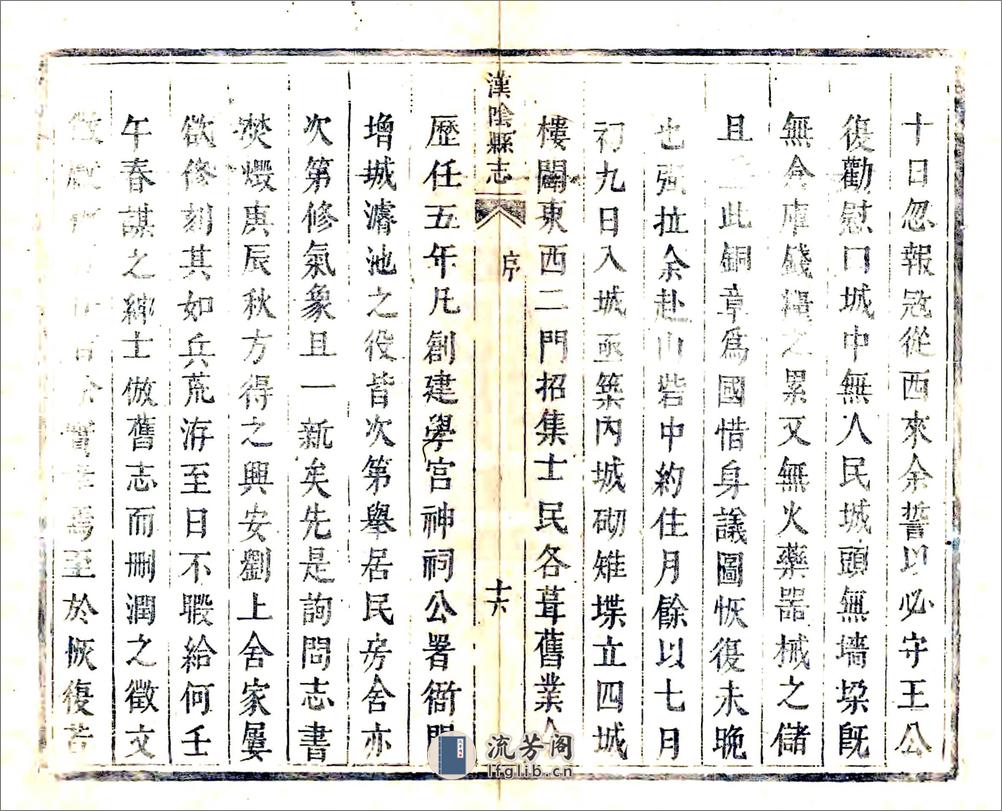 十日忽報寇從西來余誓以必守王公
復勸慰曰城中無人民城頭無墻垜既
無倉庫錢糧之累又無火藥器械之儲
且 此銅章爲國惜身議圖恢復未晚
也强拉余赴山砦中約住月餘以七月
初九日入城亟築内城砌雉堞立四城
樓闢東西二門招集士民各葺舊業
漢陰縣志
序
十六
歷任五年凡創建學宫神祠公署衙門
增城濬池之役皆次第舉居民房舍亦
次第修氣象且一新矣先是詢問志書
焚燬庚辰秋方得之興安劉上舍家屢
欲修刻其如兵荒洊至日不暇給何壬
午春謀之紳士倣舊志而刪潤之徵文
爲至於恢復苦
流芳阁
lfglib.cn